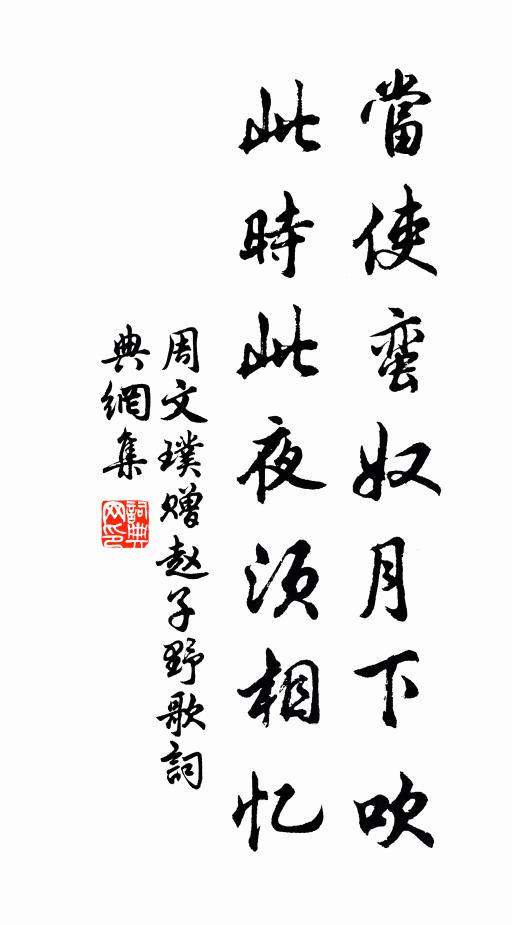 當使蛮奴月下吹
此時此夜须相忆
周文璞赠赵子野歌詞
典網集
詞典
网印